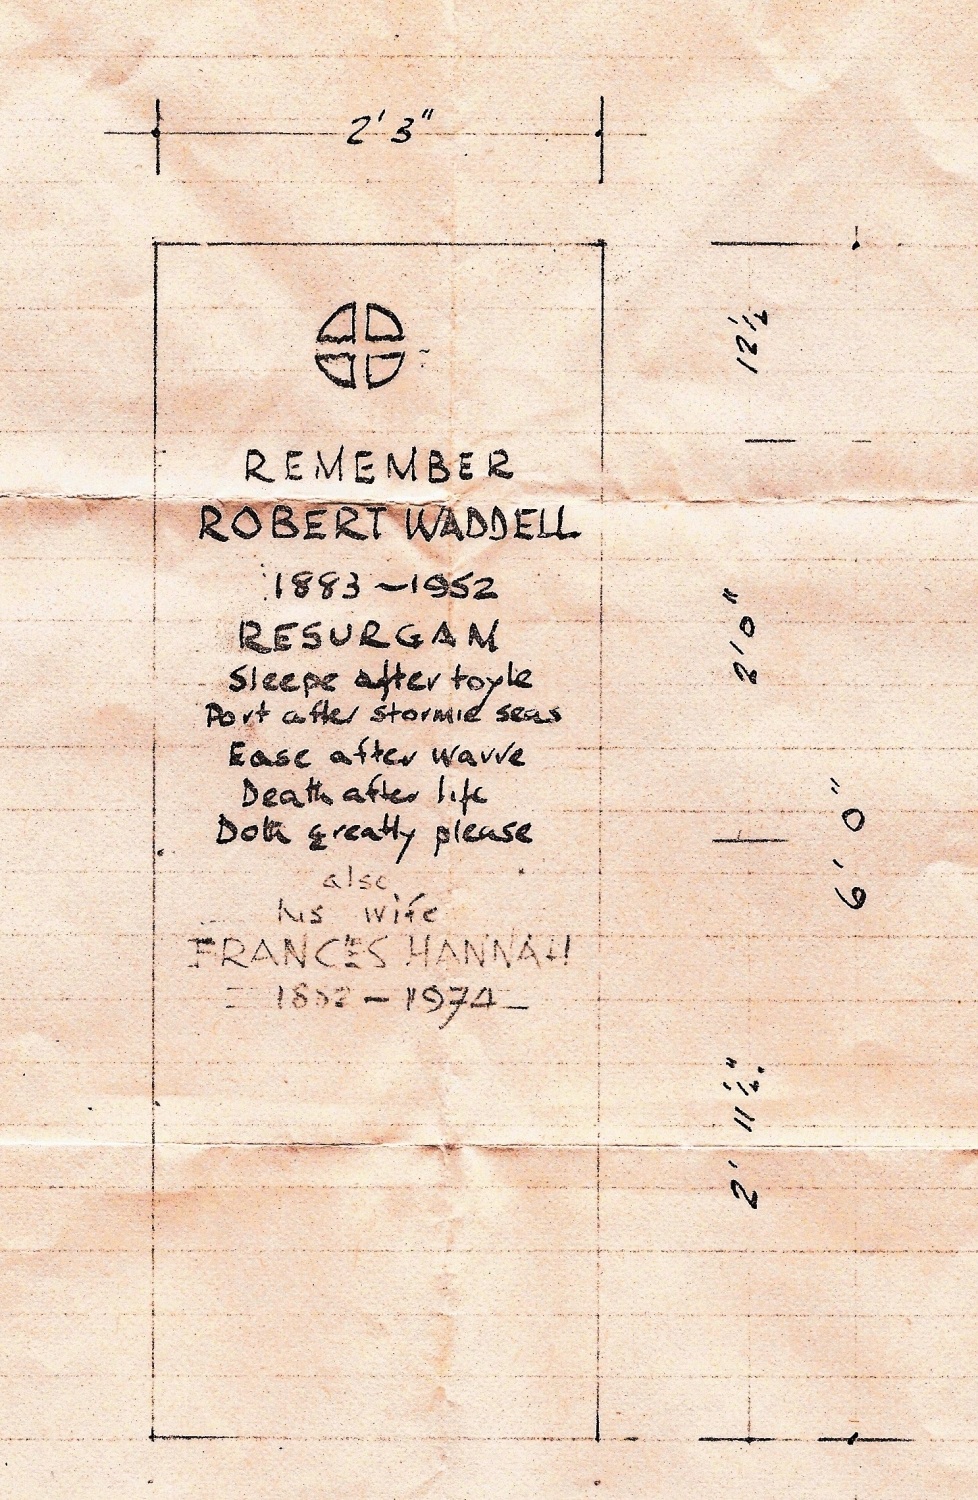 2' 3"
12½
REMEMBER
ROBERT WADDELL
1883 – 1952
RESURGAM
Sleepe after toyle
Port after stormie seas
Ease after warre
Death after life
Doth greatly please
also
his wife
FRANCES HANNAH
– 1974
2' 0"
6' 0"
2' 11½"